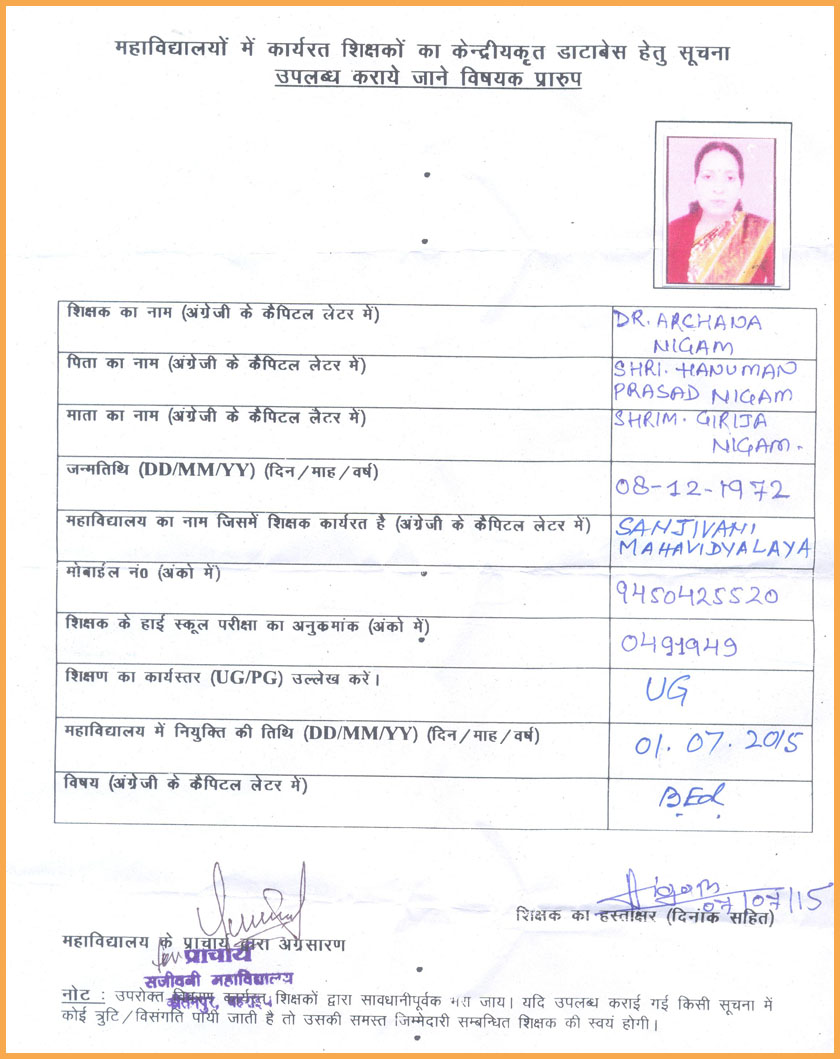 महाविद्यालयों में कार्यरत शिक्षकों का केन्द्रीयकृत डाटाबेस हेतु सूचना
उपलब्ध कराये जाने विषयक प्रारुप
शिक्षक का नाम (अंग्रेजी के कैपिटल लेटर में)
DR. ARCHANA
NIGAM
पिता का नाम (अंग्रेजी के कैपिटल लेटर में)
SHRI. HANUMAN
PRASAD NIGAM
माता का नाम (अंग्रेजी के कैपिटल लैटर में)
SHRIM. GIRIJA
NIGAM.
जन्मतिथि (DD/MM/YY) (दिन/माह/वर्ष)
08-12-1972
महाविद्यालय का नाम जिसमें शिक्षक कार्यरत है (अंग्रेजी के कैपिटल लेटर में)
SANJIVANI
MAHAVIDYALAYA
मोबाईल नं0 (अंको में)
9450425520
शिक्षक के हाई स्कूल परीक्षा का अनुकमांक (अंको में)
0491949
शिक्षण का कार्यस्तर (UG/PG) उल्लेख करें।
UG
महाविद्यालय में नियुक्ति की तिथि (DD/MM/YY) (दिन/माह/वर्ष)
01.07.2015
विषय (अंग्रेजी के कैपिटल लेटर में)
B.Ed.
Nigam
07/07/15
शिक्षक का हस्ताक्षर (दिनांक सहित)
महाविद्यालय के प्राचार्य द्वारा अग्रसारण
प्राचार्य
सजीवनी महाविद्यालय
नोट : उपरोक्त कार्यरत शिक्षकों द्वारा सावधानीपूर्वक भरा जाय। यदि उपलब्ध कराई गई किसी सूचना में
कोई त्रुटि/विसंगति पायी जाती है तो उसकी समस्त जिम्मेदारी सम्बन्धित शिक्षक की स्वयं होगी।